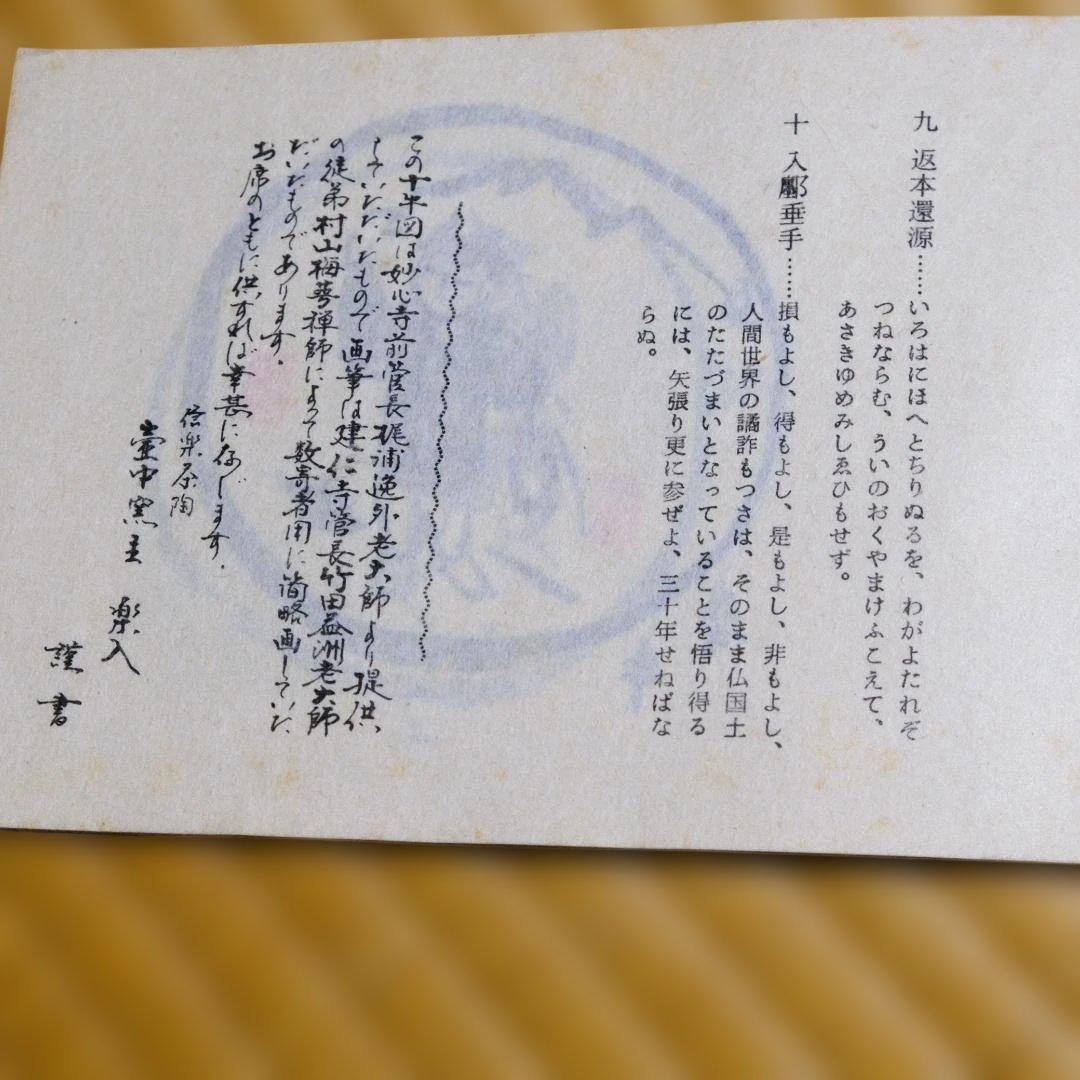 九 返本還源……いろはにほへとちりぬるを、わがよたれぞ
つねならむ、ういのおくやまけふこえて、
あさきゆめみしゑひもせず。
十 入鄽垂手……損もよし、得もよし、是もよし、非もよし、
人間世界の譎詐もつさは、そのまま仏国土
のたたづまいとなっていることを悟り得る
には、矢張り更に参ぜよ、三十年せねばな
らぬ。
この十牛図は妙心寺前管長梶浦逸外老大師より提供
していただいたもので画筆は建仁寺管長竹田益洲老大師
の徒弟村山梅蕚禅師によって数寄者用に簡略画していた
だいたものであります。
お席のともに供すれば幸甚に存じます。
信楽茶陶
壷中窯主 楽入
謹書